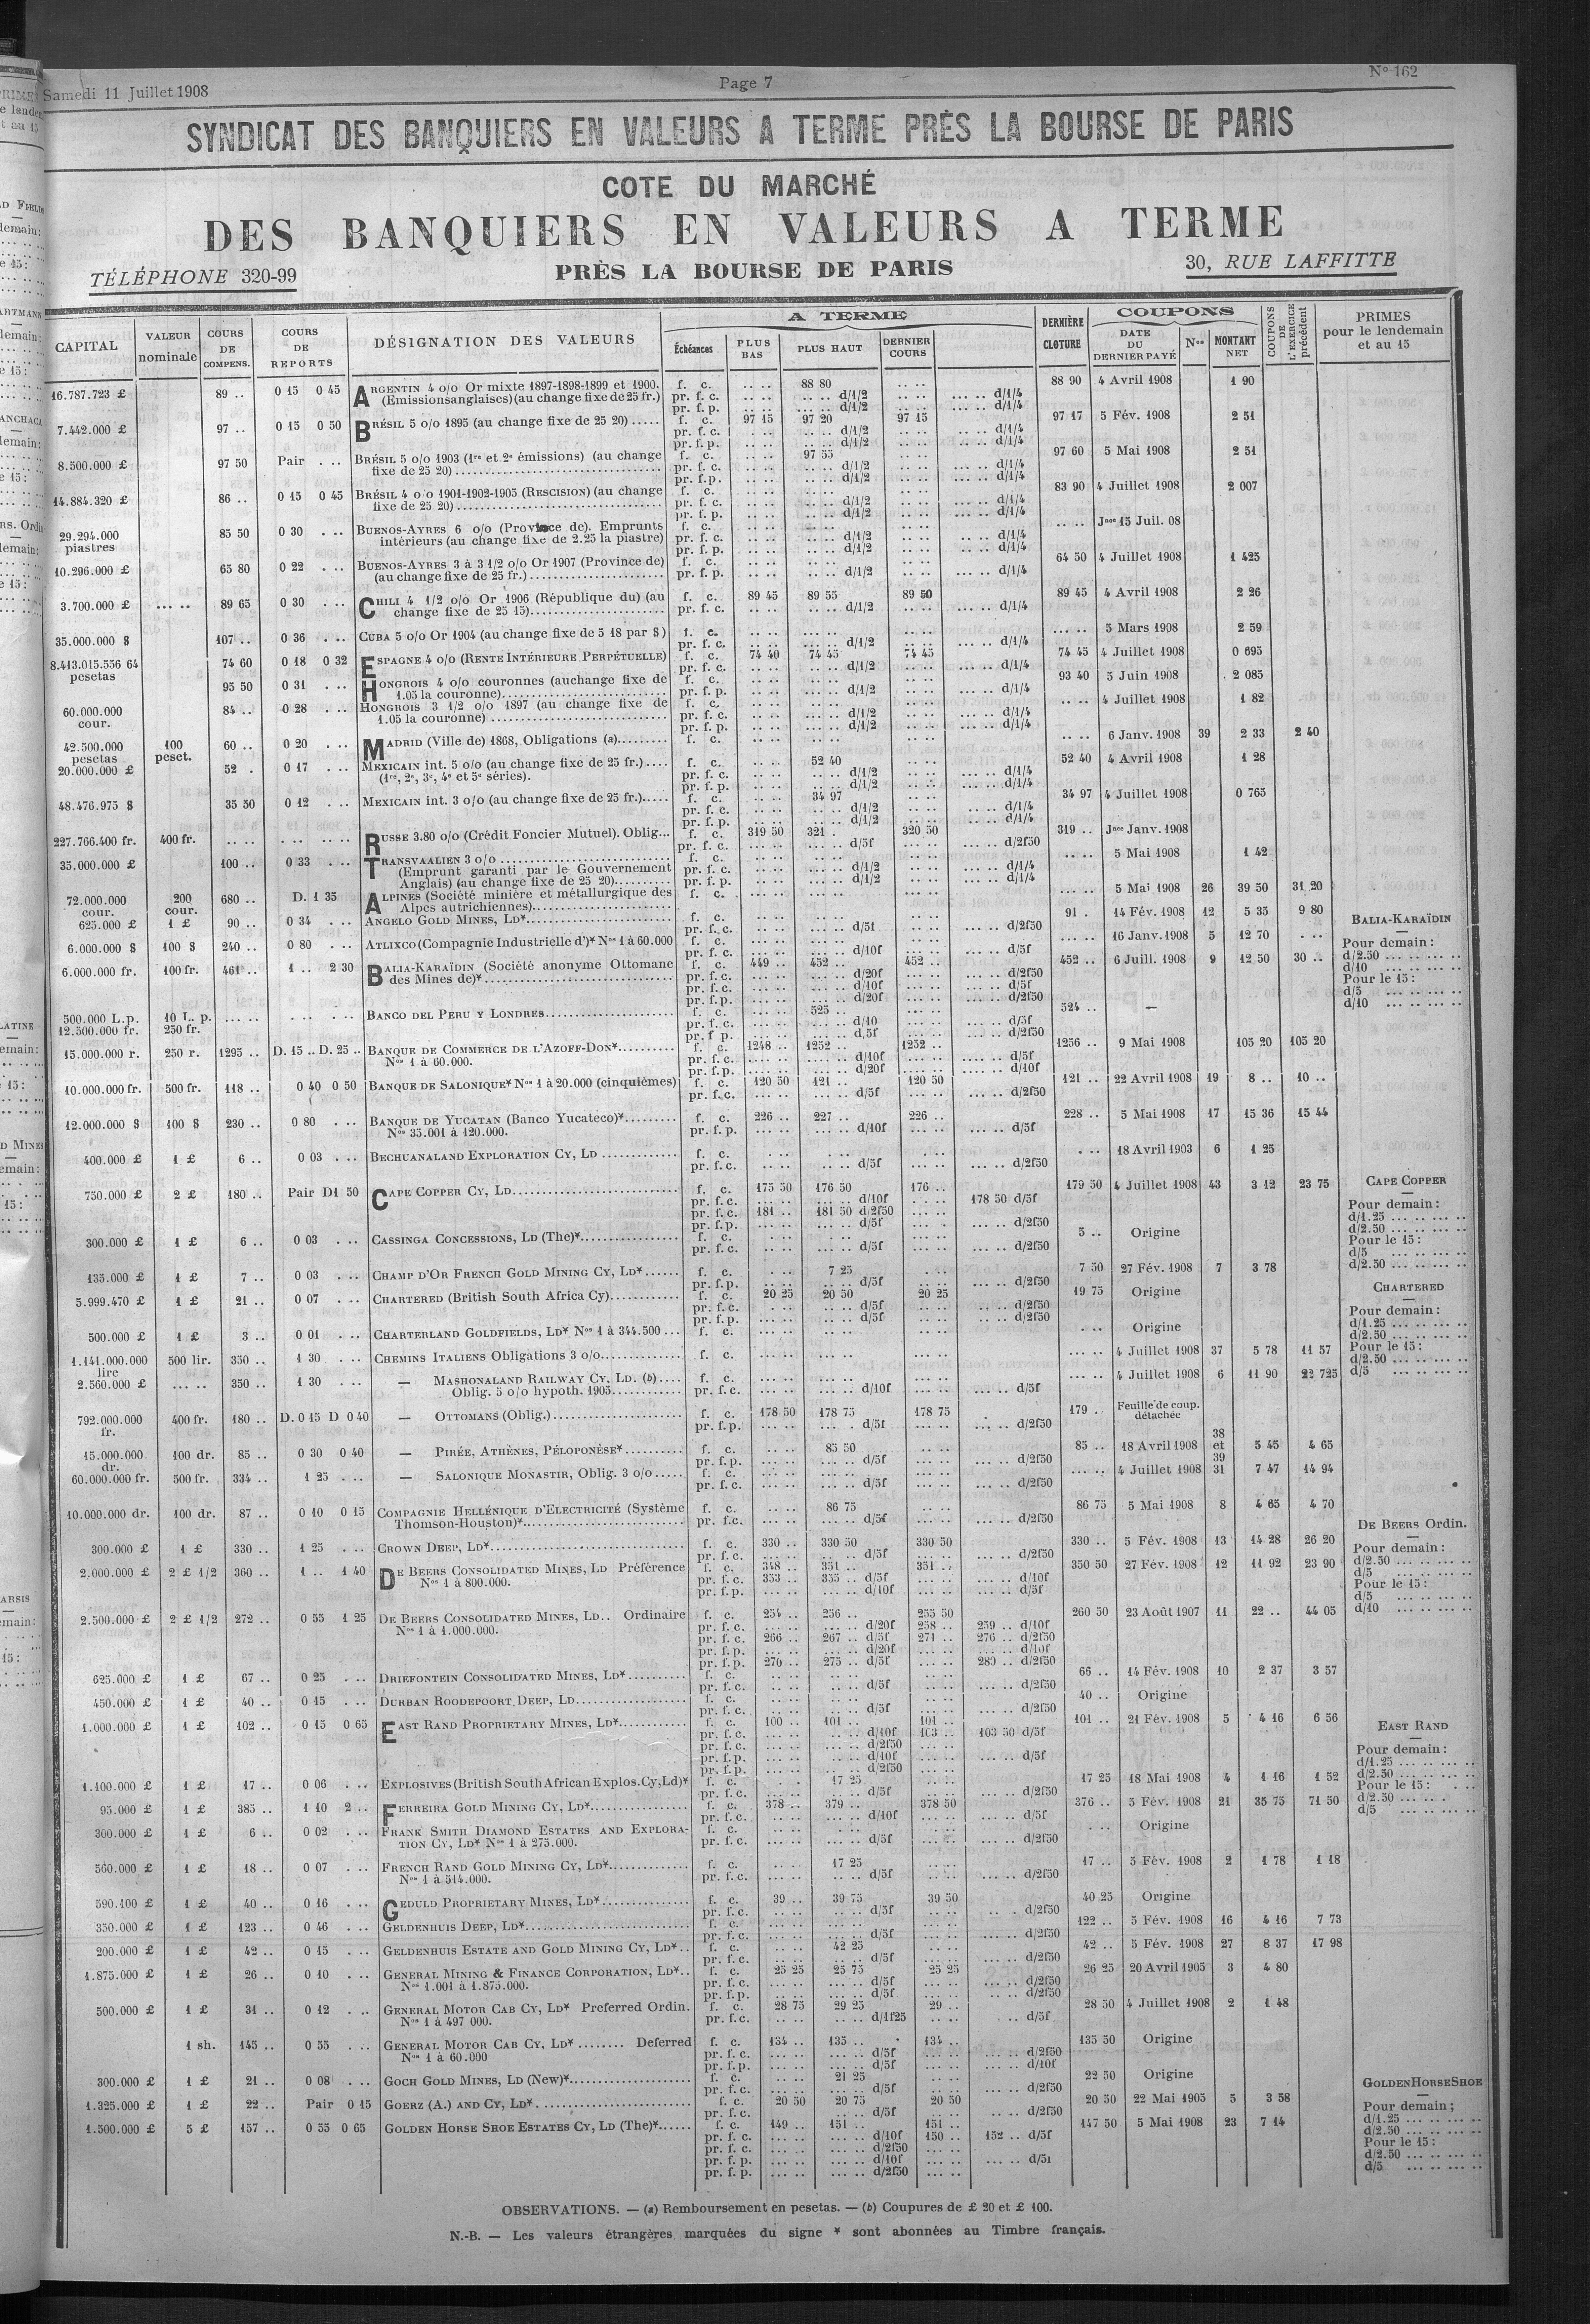 Samedi 11 Juillet 1908
Page 7
N° 162
SYNDICAT DES BANQUIERS EN VALEURS A TERME PRÈS LA BOURSE DE PARIS
COTE DU MARCHÉ
DES BANQUIERS EN VALEURS A TERME
TÉLÉPHONE 320-99
PRÈS LA BOURSE DE PARIS
30, RUE LAFFITTE
CAPITAL
VALEUR nominale
COURS DE COMPENS.
COURS DE REPORTS
DÉSIGNATION DES VALEURS
A TERME
Échéances
PLUS BAS
PLUS HAUT
DERNIER COURS
DERNIÈRE CLOTURE
COUPONS
DATE DU DERNIER PAYÉ
Nos
MONTANT NET
COUPONS DE L'EXERCICE précédent
PRIMES pour le lendemain et au 15
16.787.723 £ 89 .. 0 15 0 45 ARGENTIN 4 o/o Or mixte 1897-1898-1899 et 1900. f. c. .. .. 88 80 .. .. 88 90 4 Avril 1908 1 90
(Emissions anglaises) (au change fixe de 25 fr.) pr. f. c. .. .. .. .. d/1/2 .. .. ... .. d/1/4
pr. f. p. .. .. ... .. d/1/2 .. .. ... .. d/1/4
7.442.000 £ 97 .. 0 15 0 50 BRÉSIL 5 o/o 1895 (au change fixe de 25 20) ..... f. c. 97 15 97 20 97 15 97 17 5 Fév. 1908 2 51
pr. f. c. .. .. .. .. d/1/2 .. .. ... .. d/1/4
pr. f. p. .. .. .. .. d/1/2 .. .. .. .. d/1/4
8.500.000 £ 97 50 Pair . .. BRÉSIL 5 o/o 1903 (1re et 2e émissions) (au change f. c. .. .. 97 55 .. .. 97 60 5 Mai 1908 2 51
fixe de 25 20) pr. f. c. .. .. .. .. d/1/2 .. .. ... .. d/1/4
pr. f. p. .. .. .. .. d/1/2 .. .. ... .. d/1/4
14.884.320 £ 86 .. 0 15 0 45 BRÉSIL 4 o o 1901-1902-1905 (RESCISION) (au change f. c. .. .. .. .. .. .. 83 90 4 Juillet 1908 2 007
fixe de 25 20) pr. f. c. .. .. .. .. d/1/2 .. .. ... .. d/1/4
pr. f. p. .. .. .. .. d/1/2 .. .. ... .. d/1/4
29.294.000 piastres 85 50 0 30 . .. BUENOS-AYRES 6 o/o (Province de). Emprunts f. c. .. .. .. .. .. .. .. .. Jnce 15 Juil. 08
intérieurs (au change fixe de 2.25 la piastre) pr. f. c. .. .. .. .. d/1/2 .. .. ... .. d/1/4
pr. f. p. .. .. .. .. d/1/2 .. .. ... .. d/1/4
10.296.000 £ 65 80 0 22 . .. BUENOS-AYRES 3 à 3 1/2 o/o Or 1907 (Province de) f. c. .. .. .. .. .. .. 64 50 4 Juillet 1908 1 425
(au change fixe de 25 fr.) pr. f. p. .. .. .. .. d/1/2 .. .. ... .. d/1/4
3.700.000 £ ... .. 89 65 0 30 . .. CHILI 4 1/2 o/o Or 1906 (République du) (au f. c. 89 45 89 55 89 50 89 45 4 Avril 1908 2 26
change fixe de 25 15) pr. f. c. .. .. .. .. d/1/2 .. .. ... .. d/1/4
35.000.000 $ 107 .. 0 36 . .. CUBA 5 o/o Or 1904 (au change fixe de 5 18 par $) f. c. .. .. ... .. .. .. ... .. 5 Mars 1908 2 59
pr. f. c. .. .. .. .. d/1/2 .. .. ... .. d/1/4
8.413.015.556 64 pesetas 74 60 0 18 0 32 ESPAGNE 4 o/o (RENTE INTÉRIEURE PERPÉTUELLE) f. c. 74 40 74 45 74 45 74 45 4 Juillet 1908 0 695
pr. f. c. .. .. .. .. d/1/2 .. .. ... .. d/1/4
95 50 0 31 . .. HONGROIS 4 o/o couronnes (au change fixe de f. c. .. .. .. .. .. .. 93 40 5 Juin 1908 2 085
1.05 la couronne) pr. f. p. .. .. .. .. d/1/2 .. .. ... .. d/1/4
60.000.000 cour. 84 .. 0 28 . .. HONGROIS 3 1/2 o/o 1897 (au change fixe de f. c. .. .. .. .. .. .. .. .. 4 Juillet 1908 1 82
1.05 la couronne) pr. f. c. .. .. .. .. d/1/2 .. .. ... .. d/1/4
pr. f. p. .. .. .. .. d/1/2 .. .. ... .. d/1/4
42.500.000 pesetas 100 peset. 60 .. 0 20 . .. MADRID (Ville de) 1868, Obligations (a) f. c. .. .. .. .. .. .. .. .. 6 Janv. 1908 39 2 33 2 40
20.000.000 £ 52 . 0 17 . .. MEXICAIN int. 5 o/o (au change fixe de 25 fr.) f. c. .. .. 52 40 .. .. 52 40 4 Avril 1908 1 28
(1re, 2e, 3e, 4e et 5e séries). pr. f. c. .. .. .. .. d/1/2 .. .. ... .. d/1/4
pr. f. p. .. .. .. .. d/1/2 .. .. ... .. d/1/4
48.476.975 $ 35 50 0 12 . .. MEXICAIN int. 3 o/o (au change fixe de 25 fr.) f. c. .. .. 34 97 .. .. 34 97 4 Juillet 1908 0 765
pr. f. c. .. .. .. .. d/1/2 .. .. ... .. d/1/4
pr. f. p. .. .. .. .. d/1/2 .. .. ... .. d/1/4
227.766.400 fr. 400 fr. .. .. . .. . .. RUSSE 3.80 o/o (Crédit Foncier Mutuel). Oblig... f. c. 319 50 321 . 320 50 319 .. Jnce Janv. 1908
pr. f. c. .. .. .. .. d/5f .. .. ... .. d/2f50
35.000.000 £ 100 .. 0 33 . .. TRANSVAALIEN 3 o/o f. c. .. .. .. .. .. .. .. .. 5 Mai 1908 1 42
(Emprunt garanti par le Gouvernement pr. f. c. .. .. .. .. d/1/2 .. .. ... .. d/1/4
Anglais) (au change fixe de 25 20) pr. f. p. .. .. .. .. d/1/2 .. .. ... .. d/1/4
72.000.000 cour. 200 cour. 680 .. D. 1 35 ALPINES (Société minière et métallurgique des f. c. ... .. ... .. ... .. ... .. 5 Mai 1908 26 39 50 31 20
Alpes autrichiennes)
625.000 £ 1 £ 90 .. 0 34 . .. ANGELO GOLD MINES, LD* f. c. .. .. .. .. .. .. 91 . 14 Fév. 1908 12 5 35 9 80
pr. f. c. ... .. ... .. d/5f ... .. ... .. d/2f50
6.000.000 $ 100 $ 240 .. 0 80 . .. ATLIXCO (Compagnie Industrielle d')* Nos 1 à 60.000 f. c. ... .. ... .. ... .. ... .. 16 Janv. 1908 5 12 70 . ..
pr. f. c. ... .. ... .. d/10f ... .. ... .. d/5f
6.000.000 fr. 100 fr. 461 .. 1 .. 2 30 BALIA-KARAÏDIN (Société anonyme Ottomane f. c. 449 .. 452 .. 452 .. 452 .. 6 Juill. 1908 9 12 50 30 ..
des Mines de)* pr. f. c. ... .. ... .. d/20f ... .. ... .. d/2f50
pr. f. c. ... .. ... .. d/10f ... .. ... .. d/5f
pr. f. p. ... .. ... .. d/20f ... .. ... .. d/2f50
BALIA-KARAÏDIN
Pour demain :
d/2.50 ... .. ... ..
d/10 ... .. ... ..
Pour le 15 :
d/5 ... .. ... ..
d/10 ... .. ... ..
500.000 L.p. 10 L. p. ... .. . .. . .. BANCO DEL PERU Y LONDRES f. c. ... .. 525 .. ... .. 524 .. —
12.500.000 fr. 250 fr. pr. f. c. ... .. ... .. d/10 ... .. ... .. d/5f
pr. f p. ... .. ... .. d.5f ... .. ... .. d/2f50
15.000.000 r. 250 r. 1295 .. D. 15 .. D. 25 .. BANQUE DE COMMERCE DE L'AZOFF-DON* f. c. 1248 .. 1252 .. 1252 .. 1256 .. 9 Mai 1908 105 20 105 20
Nos 1 à 60.000. pr. f. c. .... .. .... .. d/10f .... .. .... .. d/5f
pr. f. c. .... .. .... .. d/20f .... .. .... .. d/10f
10.000.000 fr. 500 fr. 118 .. 0 40 0 50 BANQUE DE SALONIQUE* Nos 1 à 20.000 (cinquièmes) f. c. 120 50 121 .. 120 50 121 .. 22 Avril 1908 19 8 .. 10 ..
pr. f. c. ... .. ... .. d/5f ... .. ... .. d/2f50
12.000.000 $ 100 $ 230 .. 0 80 . .. BANQUE DE YUCATAN (Banco Yucateco)* f. c. 226 .. 227 .. 226 .. 228 .. 5 Mai 1908 17 15 36 15 44
Nos 35.001 à 120.000. pr. f. p. ... .. ... .. d/10f ... .. ... .. d/5f
400.000 £ 1 £ 6 .. 0 03 . .. BECHUANALAND EXPLORATION CY, LD f. c. . .. . .. . .. . .. 18 Avril 1903 6 1 25
pr. f. c. .. .. .. .. d/5f .. .. ... .. d/2f50
750.000 £ 2 £ 180 .. Pair D1 50 CAPE COPPER CY, LD f. c. 175 50 176 50 176 .. 179 50 4 Juillet 1908 43 3 12 23 75
pr. f. c. ... .. ... .. d/10f . .. 178 50 d/5f
pr. f. c. 181 .. 181 50 d/2f50 ... ..
pr. f. p. ... .. ... .. d/5f . .. ... .. d/2f50
CAPE COPPER
Pour demain :
d/1.25 ... .. ... ..
d/2.50 ... .. ... ..
Pour le 15 :
d/5 ... .. ... ..
d/2.50 ... .. ... ..
300.000 £ 1 £ 6 .. 0 03 . .. CASSINGA CONCESSIONS, LD (The)* f. c. .. .. .. .. .. .. 5 .. Origine
pr. f. c. .. .. .. .. d/5f .. .. ... .. d/2f50
135.000 £ 1 £ 7 .. 0 03 . .. CHAMP D'OR FRENCH GOLD MINING CY, LD* f. c. . .. 7 25 . .. 7 50 27 Fév. 1908 7 3 78
pr. f. p. .. .. .. .. d/5f .. .. ... .. d/2f50
5.999.470 £ 1 £ 21 .. 0 07 . .. CHARTERED (British South Africa Cy) f. c. 20 25 20 50 20 25 19 75 Origine
pr. f. c. . .. .. .. d/5f .. .. ... .. d/2f50
pr. f. p. .. .. .. .. d/5f .. .. .. .. d/2f50
CHARTERED
Pour demain :
d/1.25 ... .. ... ..
d/2.50 ... .. ... ..
Pour le 15 :
d/2.50 ... .. ... ..
d/5 ... .. ... ..
500.000 £ 1 £ 3 .. 0 01 . .. CHARTERLAND GOLDFIELDS, LD* Nos 1 à 344.500 ... f. c. .. .. .. .. .. .. . .. Origine
1.141.000.000 lire 500 lir. 350 .. 1 30 . .. CHEMINS ITALIENS Obligations 3 o/o f. c. ... .. ... .. ... .. ... .. 4 Juillet 1908 37 5 78 11 57
2.560.000 £ ... .. 350 .. 1 30 . .. — MASHONALAND RAILWAY CY, LD. (b) f. c. ... .. ... .. ... .. ... .. 4 Juillet 1908 6 11 90 22 725
Oblig. 5 o/o hypoth. 1905 pr. f. c. ... .. ... .. d/10f ... .. ... .. d/5f
792.000.000 fr. 400 fr. 180 .. D. 0 15 D 0 40 — OTTOMANS (Oblig.) f. c. 178 50 178 75 178 75 179 . Feuille de coup. détachée
pr. f. p. ... .. ... . d/5f ... .. ... .. d/2f50
15.000.000 dr. 100 dr. 85 .. 0 30 0 40 — PIRÉE, ATHÈNES, PÉLOPONÈSE* f. c. .. .. 85 50 .. .. 85 .. 18 Avril 1908 38 et 39 5 45 4 65
pr. f. p. .. .. ... .. d/5f .. .. ... .. d/2f50
60.000.000 fr. 500 fr. 334 .. 1 25 . .. — SALONIQUE MONASTIR, Oblig. 3 o/o f. c. ... .. ... .. ... .. ... .. 4 Juillet 1908 31 7 47 14 94
pr. f. c. ... .. ... .. d/5f ... .. ... .. d/2f50
10.000.000 dr. 100 dr. 87 .. 0 10 0 15 COMPAGNIE HELLÉNIQUE D'ELECTRICITÉ (Système f. c. .. .. 86 75 .. .. 86 75 5 Mai 1908 8 4 65 4 70
Thomson-Houston)* pr. f.c. .. .. ... .. d/5f .. .. ... .. d/2f50
300.000 £ 1 £ 330 .. 1 25 . .. CROWN DEEP, LD* f. c. 330 .. 330 50 330 50 330 .. 5 Fév. 1908 13 14 28 26 20
pr. f. c. ... .. ... .. d/5f ... .. ... .. d/2f50
2.000.000 £ 2 £ 1/2 360 .. 1 .. 1 40 DE BEERS CONSOLIDATED MINES, LD Préférence f. c. 348 .. 351 .. 351 .. 350 50 27 Fév. 1908 12 11 92 23 90
Nos 1 à 800.000. pr. f. c. 353 .. 355 .. d/5f ... .. ... .. d/10f
pr. f. p. ... .. ... .. d/10f ... .. ... .. d/5f
DE BEERS Ordin.
Pour demain :
d/2.50 ... .. ... ..
d/5 ... .. ... ..
Pour le 15 :
d/5 ... .. ... ..
d/10 ... .. ... ..
2.500.000 £ 2 £ 1/2 272 .. 0 55 1 25 DE BEERS CONSOLIDATED MINES, LD.. Ordinaire f. c. 254 .. 256 .. 255 50 260 50 23 Août 1907 11 22 .. 44 05
Nos 1 à 1.000.000. pr. f. c. ... .. ... .. d/20f 258 .. 259 .. d/10f
pr. f. c. 266 .. 267 .. d/5f 271 .. 276 .. d/2f50
pr. f. p. ... .. ... .. d/20f ... .. ... .. d/10f
pr. f. p. 270 .. 275 .. d/5f ... .. 280 .. d/2f50
625.000 £ 1 £ 67 .. 0 25 . .. DRIEFONTEIN CONSOLIDATED MINES, LD* f. c. .. .. .. .. .. .. 66 .. 14 Fév. 1908 10 2 37 3 57
pr. f. c. ... .. ... .. d/5f ... .. ... .. d/2f50
450.000 £ 1 £ 40 .. 0 15 . .. DURBAN ROODEPOORT, DEEP, LD f. c. .. .. .. .. .. .. 40 .. Origine
pr. f. c. .. .. .. .. d/5f .. .. ... .. d/2f50
1.000.000 £ 1 £ 102 .. 0 15 0 65 EAST RAND PROPRIETARY MINES, LD* f. c. 100 .. 101 .. 101 .. 101 .. 21 Fév. 1908 5 4 16 6 56
pr. f. c. ... .. ... .. d/10f 103 .. 103 50 d/5f
pr. f. c. ... .. ... .. d/2f50 ... ..
pr. f. p. ... .. ... .. d/10f ... .. ... .. d/5f
pr. f. p. ... .. ... .. d/2f50 ... ..
EAST RAND
Pour demain :
d/1.25 ... .. ... ..
d/2.50 ... .. ... ..
Pour le 15 : . ..
d/2.50 ... .. .
d/5 ... .. ... ..
1.100.000 £ 1 £ 17 .. 0 06 . .. EXPLOSIVES (British South African Explos. Cy, Ld)* f. c. . . 17 25 .. .. 17 25 18 Mai 1908 4 1 16 1 52
pr. f. c. .. .. .. .. d/5f .. .. ... .. d/2f50
95.000 £ 1 £ 385 .. 1 10 2 .. FERREIRA GOLD MINING CY, LD* f. c. 378 .. 379 .. 378 50 376 .. 5 Fév. 1908 21 35 75 71 50
pr. f. c. ... .. ... .. d/10f ... .. ... .. d/5f
300.000 £ 1 £ 6 .. 0 02 . .. FRANK SMITH DIAMOND ESTATES AND EXPLORA- f. c. . .. . .. . .. . .. Origine
TION CY, LD* Nos 1 à 275.000. pr. f. c. ... .. ... .. d/5f ... . ... .. d/2f50
560.000 £ 1 £ 18 .. 0 07 . .. FRENCH RAND GOLD MINING CY, LD* f. c. .. .. 17 25 .. .. 17 .. 5 Fév. 1908 2 1 78 1 18
Nos 1 à 514.000. pr. f. c. .. .. .. .. d/5f .. .. ... .. d/2f50
590.400 £ 1 £ 40 .. 0 16 . .. GEDULD PROPRIETARY MINES, LD* f. c. 39 .. 39 75 39 50 40 25 Origine
pr. f. c. .. .. .. .. d/5f .. .. .. . d/2f50
350.000 £ 1 £ 123 .. 0 46 . .. GELDENHUIS DEEP, LD* f. c. ... .. ... .. ... .. 122 .. 5 Fév. 1908 16 4 16 7 73
pr. f. c. ... .. ... .. d/5f ... .. ... .. d/2f50
200.000 £ 1 £ 42 .. 0 15 . .. GELDENHUIS ESTATE AND GOLD MINING CY, LD* f. c. .. .. 42 25 .. .. 42 .. 5 Fév. 1908 27 8 37 17 98
pr. f. c. .. .. .. .. d/5f .. .. ... .. d/2f50
1.875.000 £ 1 £ 26 .. 0 10 . .. GENERAL MINING & FINANCE CORPORATION, LD* f. c. 25 25 25 75 25 25 26 25 20 Avril 1905 3 4 80
Nos 1.001 à 1.875.000. pr. f. c. .. .. .. .. d/5f .. .. ... .. d/2f50
pr. f. p. .. .. .. .. d/5f .. .. .. .. d/2f50
500.000 £ 1 £ 31 .. 0 12 . .. GENERAL MOTOR CAB CY, LD* Preferred Ordin. f. c. 28 75 29 25 29 .. 28 50 4 Juillet 1908 2 1 48
Nos 1 à 497 000. pr. f.c. .. .. .. .. d/1f25 .. .. . .. d/5f
1 sh. 145 .. 0 55 . .. GENERAL MOTOR CAB CY, LD* ........ Deferred f. c. 134 .. 135 .. 134 .. 135 50 Origine
Nos 1 à 60.000 pr. f. c. ... .. ... .. d/5f ... .. ... .. d/2f50
pr. f. p. ... .. ... .. d/5f ... .. ... .. d/10f
300.000 £ 1 £ 21 .. 0 08 . .. GOCH GOLD MINES, LD (New)* f. c. .. .. 21 25 .. .. 22 50 Origine
pr. f. c. ... .. ... .. d/5f ... .. ... .. d/2f50
1.325.000 £ 1 £ 22 .. Pair 0 15 GOERZ (A.) AND CY, LD* f. c. 20 50 20 75 20 50 20 50 22 Mai 1905 5 3 58
pr. f. c. .. .. .. .. d/5f .. .. .. .. d/2f50
1.500.000 £ 5 £ 157 .. 0 55 0 65 GOLDEN HORSE SHOE ESTATES CY, LD (The)* f. c. 149 .. 151 .. 151 .. 147 50 5 Mai 1908 23 7 14
pr. f. c. ... .. ... .. d/10f 150 .. 152 .. d/5f
pr. f. c. ... .. ... .. d/2f50 ... ..
pr. f. p. ... .. ... .. d/10f ... .. ... .. d/5f
pr. f. p. ... .. ... .. d/2f50 ... ..
GOLDEN HORSE SHOE
Pour demain ;
d/1.25 ... .. ... ..
d/2.50 ... .. ... ..
Pour le 15 :
d/2.50 ... .. ... ..
d/5 ... .. ... ..
OBSERVATIONS. — (a) Remboursement en pesetas. — (b) Coupures de £ 20 et £ 100.
N.-B. — Les valeurs étrangères marquées du signe * sont abonnées au Timbre français.